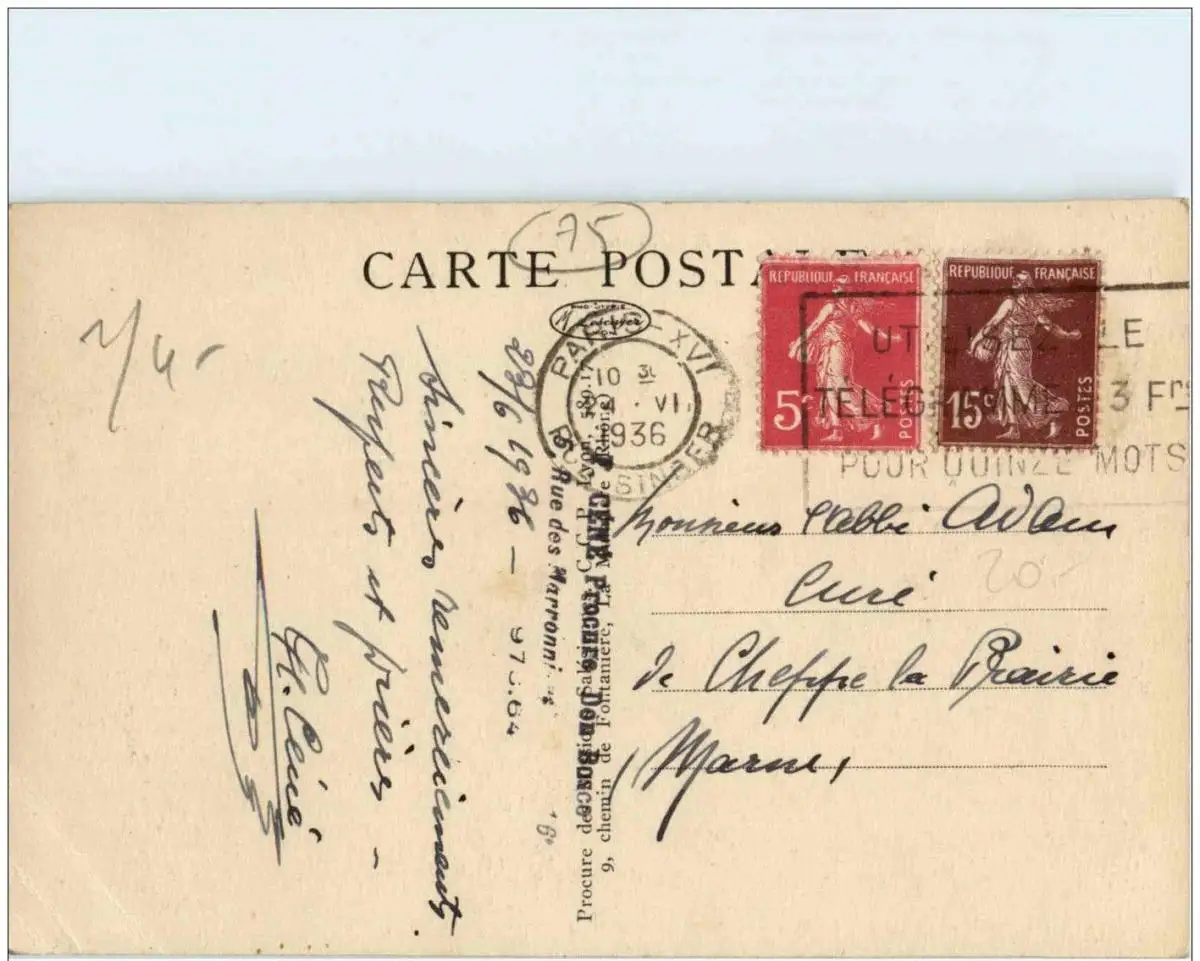 75
CARTE POSTALE
1/4-
REPUBLIQUE FRANÇAISE
5c
POSTES
REPUBLIQUE FRANÇAISE
15c
POSTES
PARIS-XVI
10 30
1936
SINGER
UTILISEZ LE
TÉLÉGRAMME 3 Frs
POUR QUINZE MOTS
Monsieur l'abbé Adam
Curé
20.-
de Cheppe la Prairie
Marne,
29/6 1936 -
Sincères remerciements
Respects et prières -
H. Cené
CENE Procure Don Bosco
Rue des Marronni
Procure des Missions Salésiennes C. C. P. Lyon, 589.17
9, chemin de Fontanière, La Mulatière (Rhône)